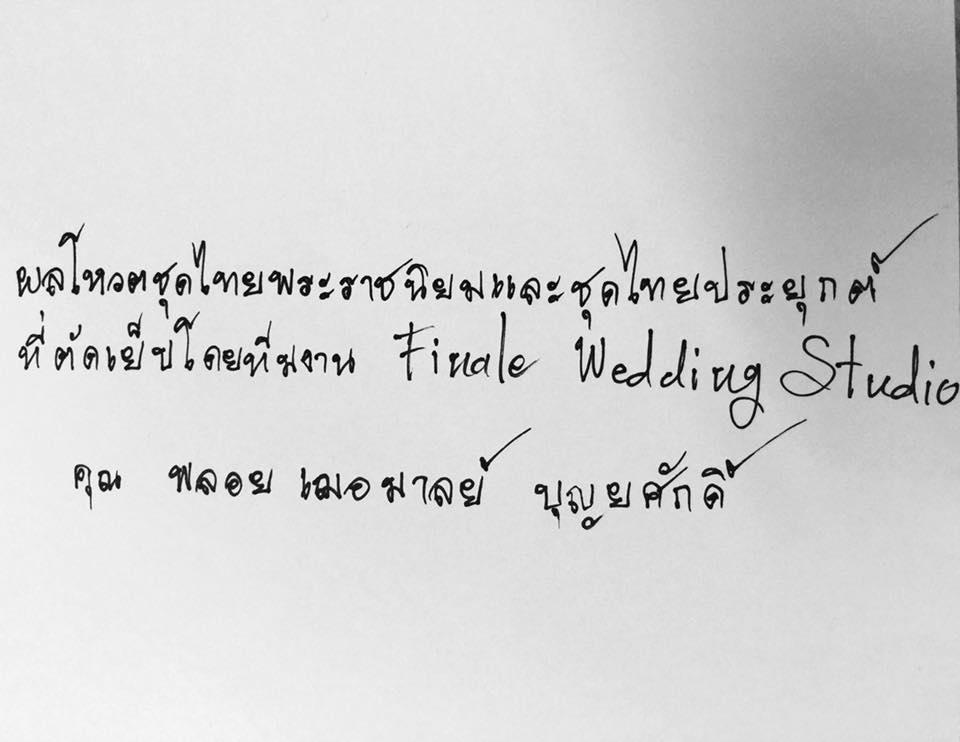 ผลโหวตชุดไทยพระราชนิยมและชุดไทยประยุกต์
ที่ตัดเย็บโดยทีมงาน Finale Wedding Studio
คุณ พลอย เฌอมาลย์ บุญยศักดิ์